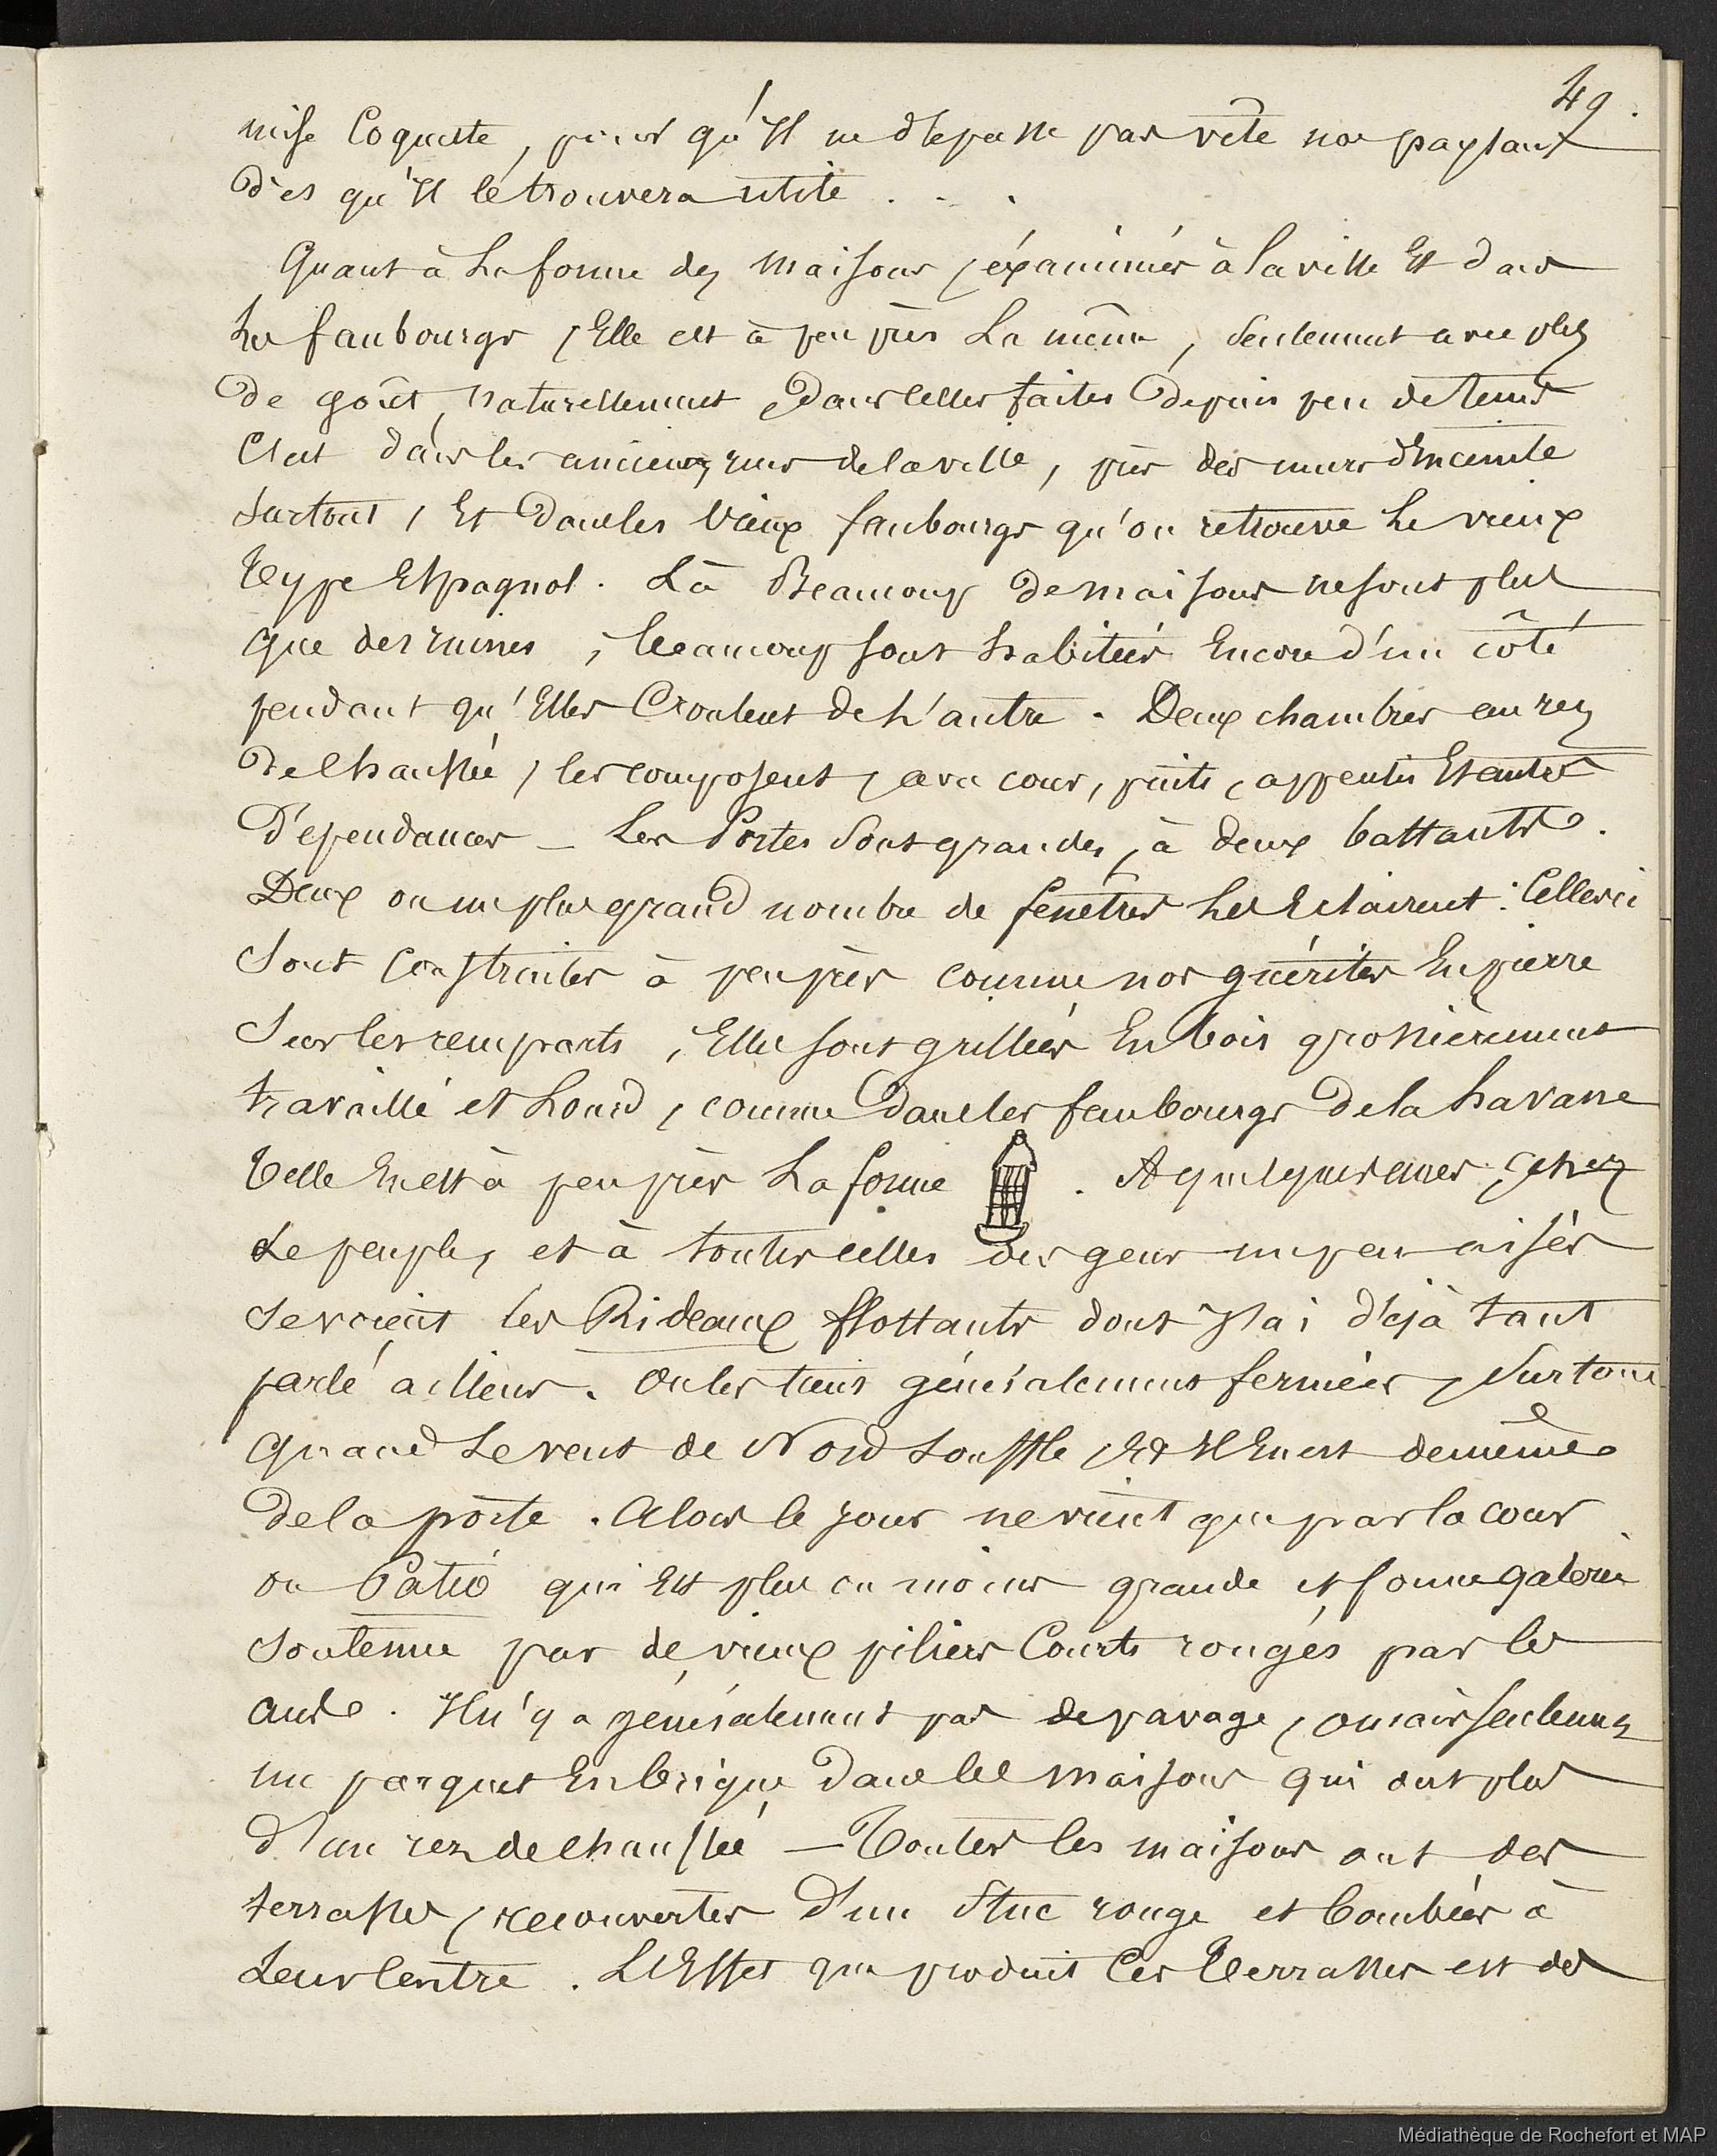 49.
mise Coquette, pour qu'Il ne dépasse pas vite nos paysans
dès qu'Il le trouvera utile . . .
Quant à La forme des Maisons, examinées à la ville Et dans
Les faubourgs, Elle est à peu près La même, seulement avec plus
de goût, naturellement, Dans Celles faites Depuis peu de temps
C'est dans les anciennes rues de la ville, près des murs d'Enceinte
surtout, Et Dans les Vieux faubourgs qu'on retrouve Le vieux
Type Espagnol. Là Beaucoup De Maisons ne sont plus
que des ruines, beaucoup sont habitées Encore d'un côté
pendant qu'Elles Croulent de L'autre. Deux chambres au rez
De Chaussée, les composent, avec cour, puits, appentis Et autres
Dépendances — Les Portes Sont grandes, à deux battants.
Deux ou un plus grand nombre de fenêtres Les Eclairent. Celles ci
Sont Construites à peu près comme nos guérites En pierre
Sur les remparts, Elles sont grillées En bois grossièrement
travaillé et Lourd, comme Dans les faubourgs De la havane
Telle En est à peu près La forme . A quelques unes, chez
Le peuple, et à toutes celles des gens un peu aisés
se voient les Rideaux flottants dont J'ai déjà tant
parlé ailleurs. On les tient généralement fermées, Surtout
quand Le vent de Nord souffle, Et Il En est de même
de la porte. Alors le jour ne vient que par la cour
ou Patio qui Est plus ou moins grande et forme galerie
soutenue par de vieux piliers Courts rongés par les
ans. Il n'y a généralement pas de pavage, mais seulement
un parquet En brique Dans les Maisons qui ont plus
d'un rez de chaussée — Toutes les maisons ont des
terrasses, recouvertes D'un Stuc rouge et Bombées à
Leur Centre. L'Effet que produit Ces Terrasses est de
Médiathèque de Rochefort et MAP